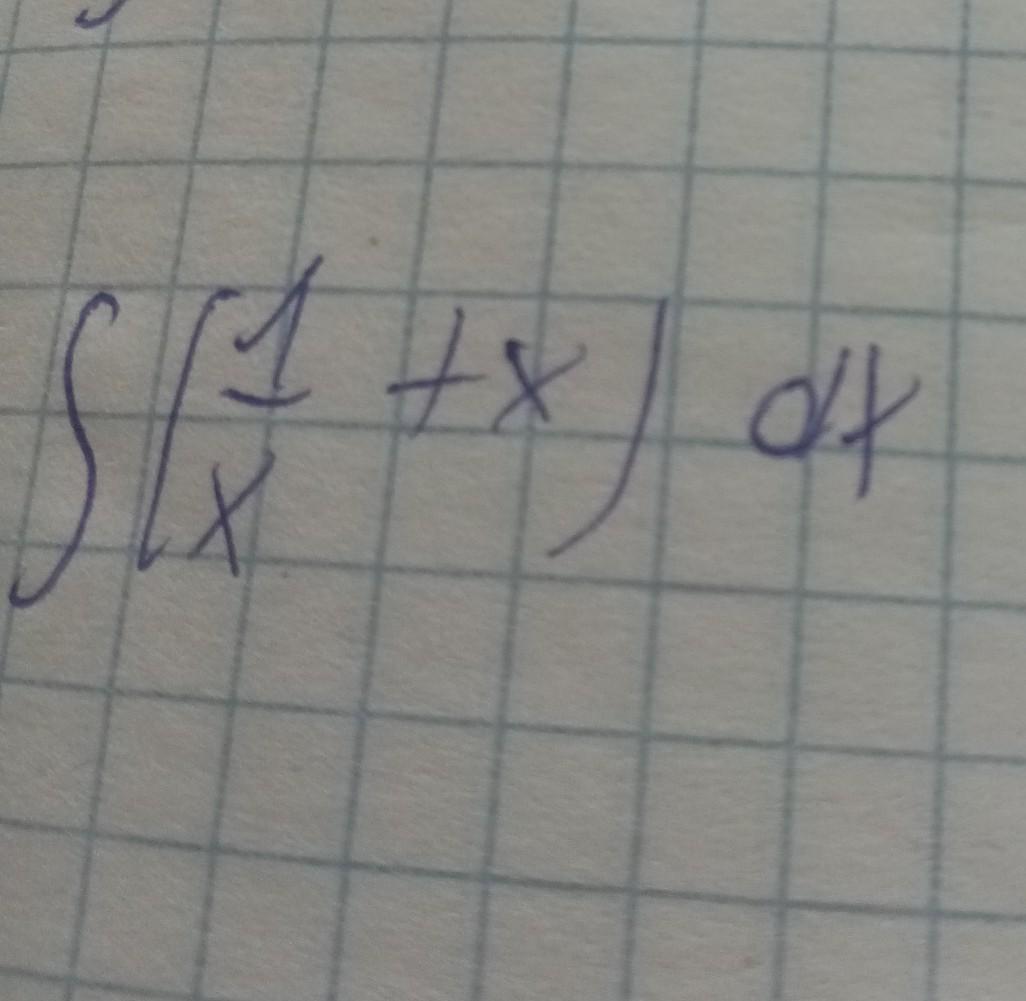 ∫(1/x + x) dx